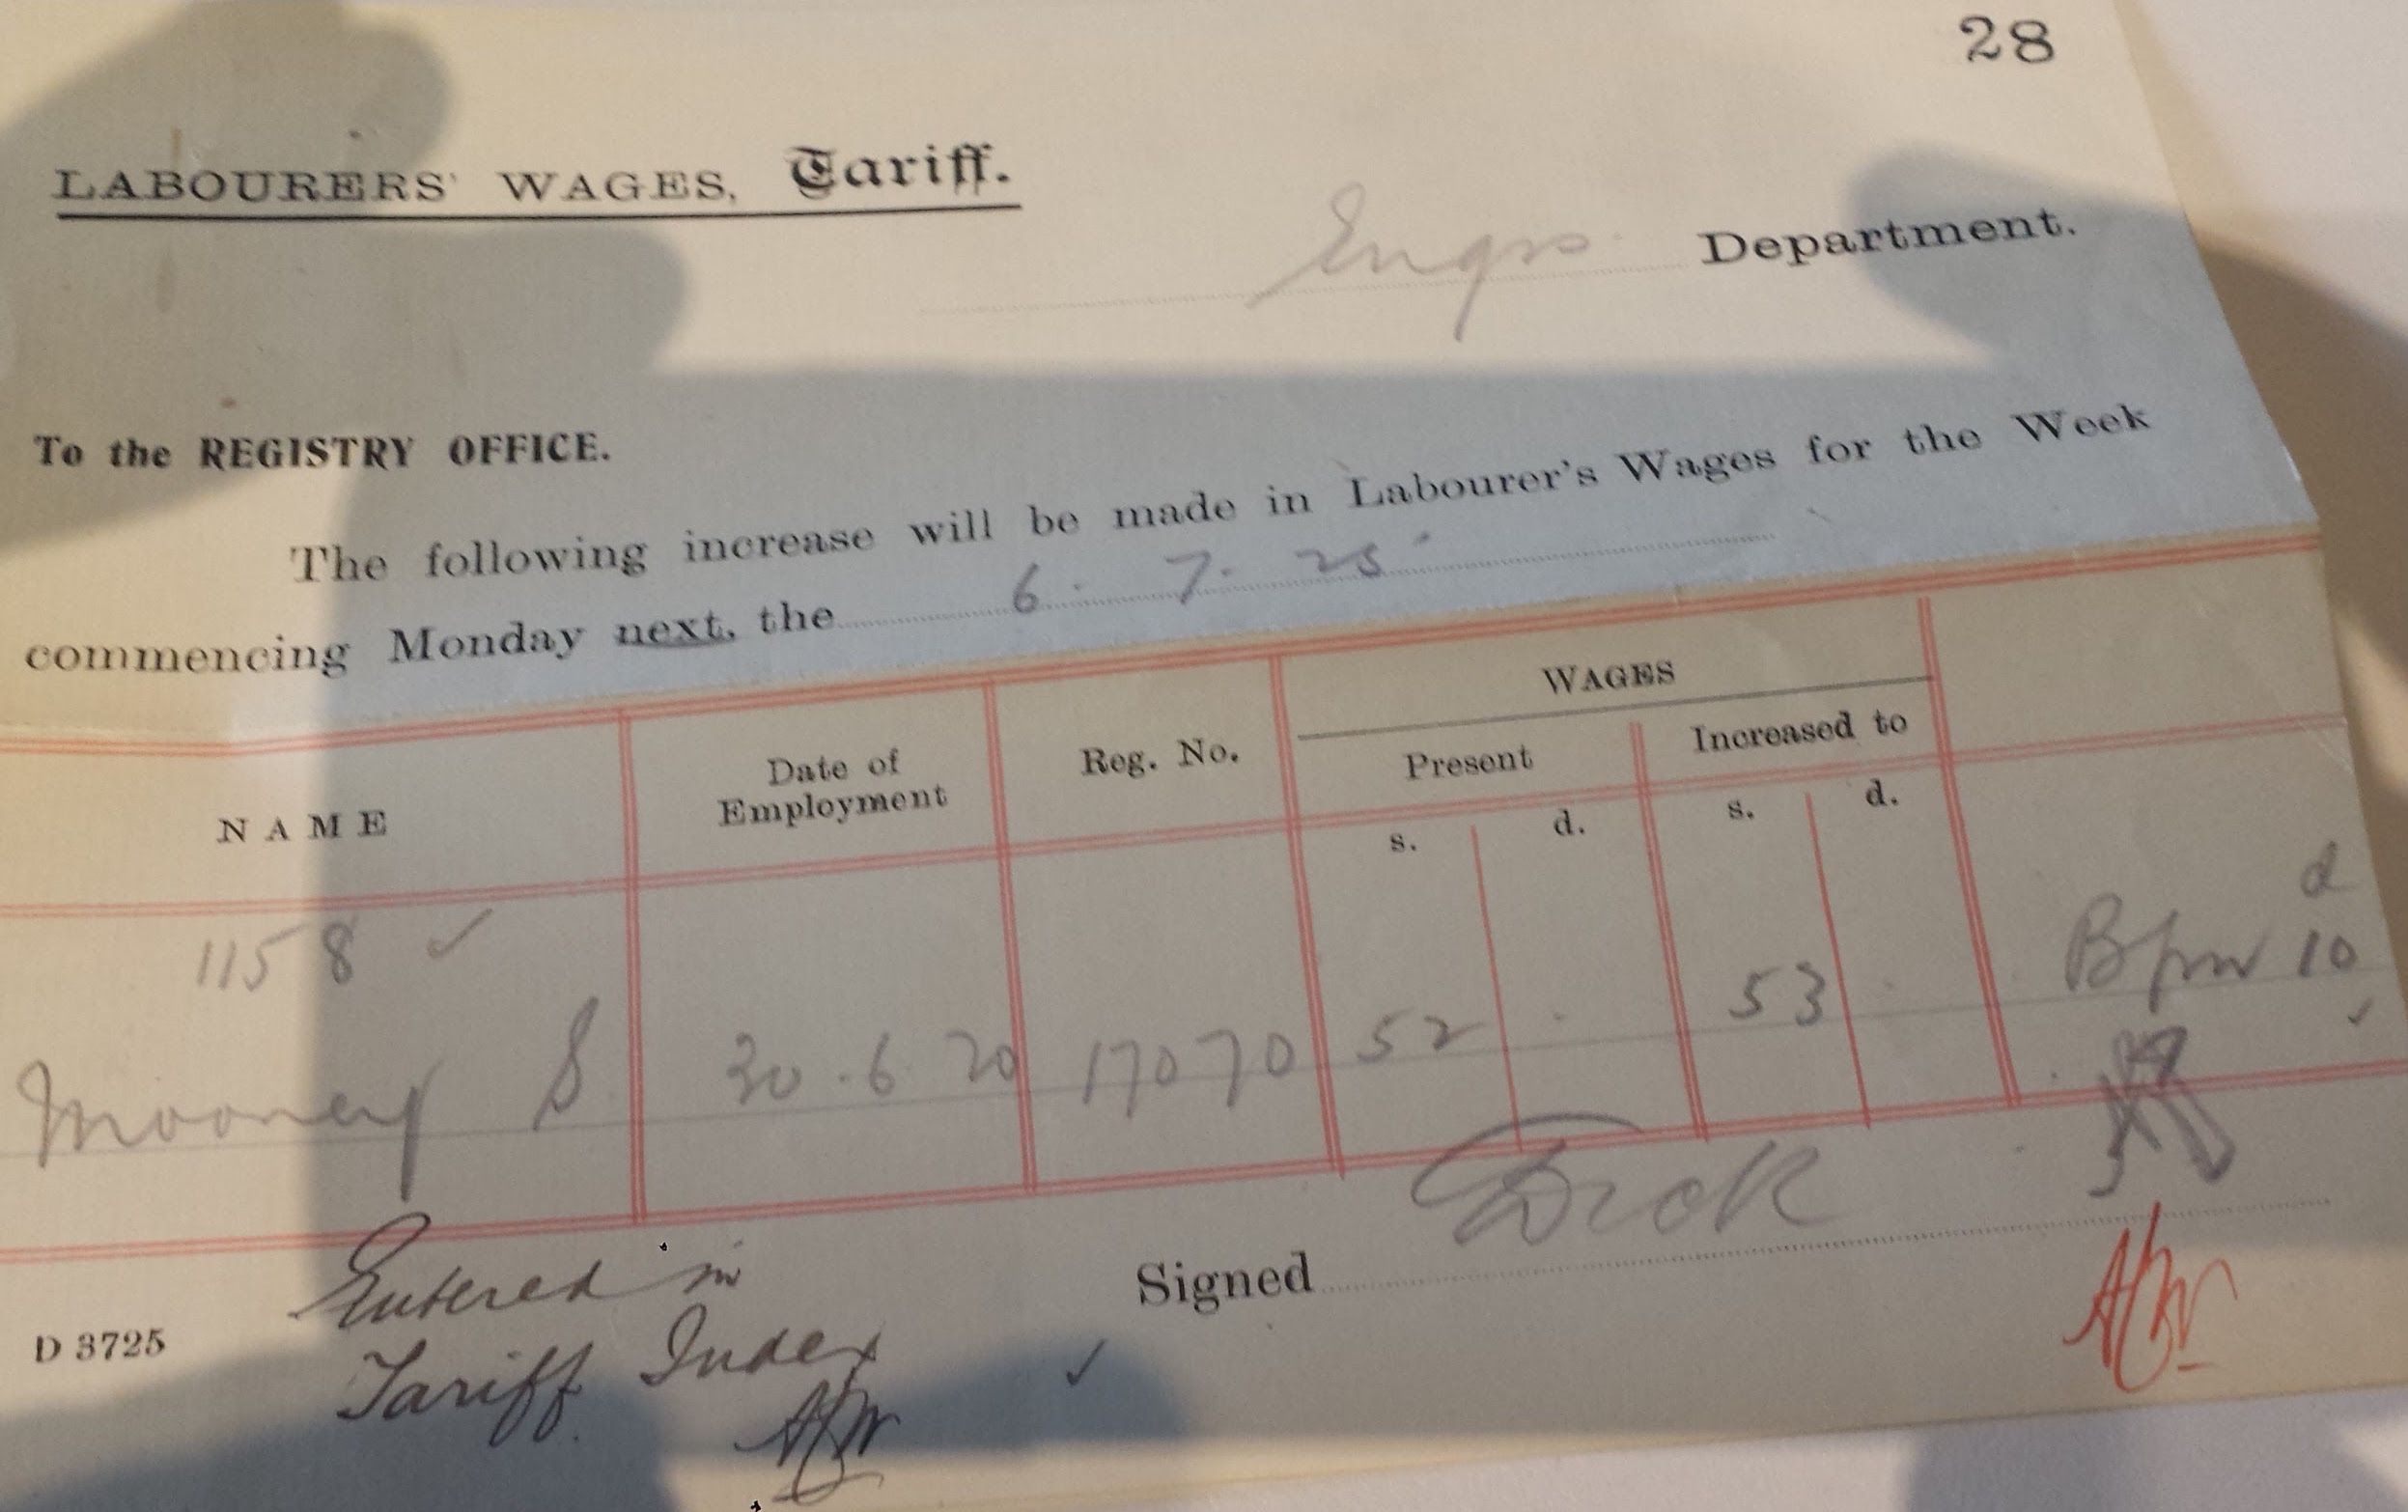 28
LABOURERS' WAGES, Tariff.
Engrs. Department.
To the REGISTRY OFFICE.
The following increase will be made in Labourer's Wages for the Week
commencing Monday next, the 6. 7. 25
WAGES
NAME Date of Employment Reg. No. Present Increased to
s. d. s. d.
1158 ✓ d
Mooney S 30.6.20 17070 52 . 53 . 10 ✓
Signed
D 3725
Entered in
Tariff Index ✓